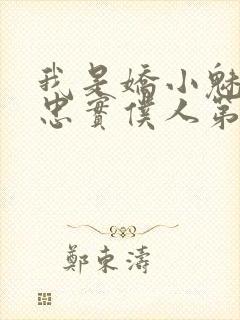 我是嬌小魅
忠實僕人第
鄭東濤